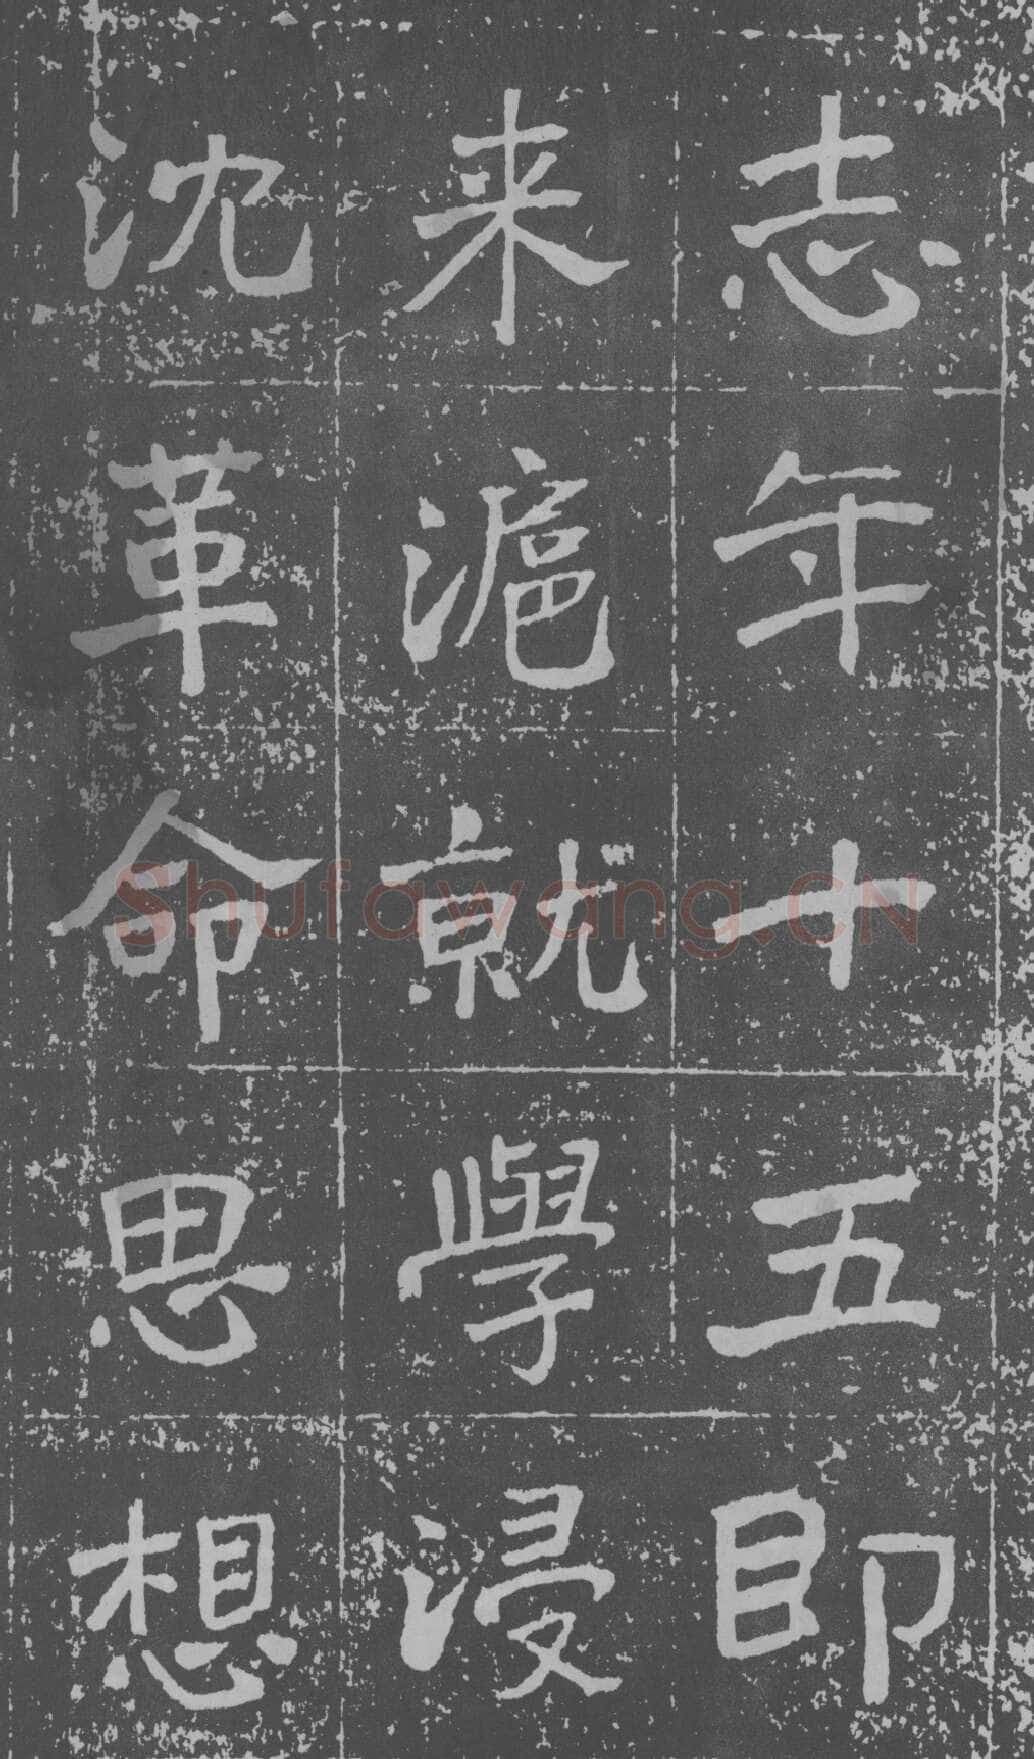 志年十五即
来滬就學浸
沈革命思想
Shufawang.CN